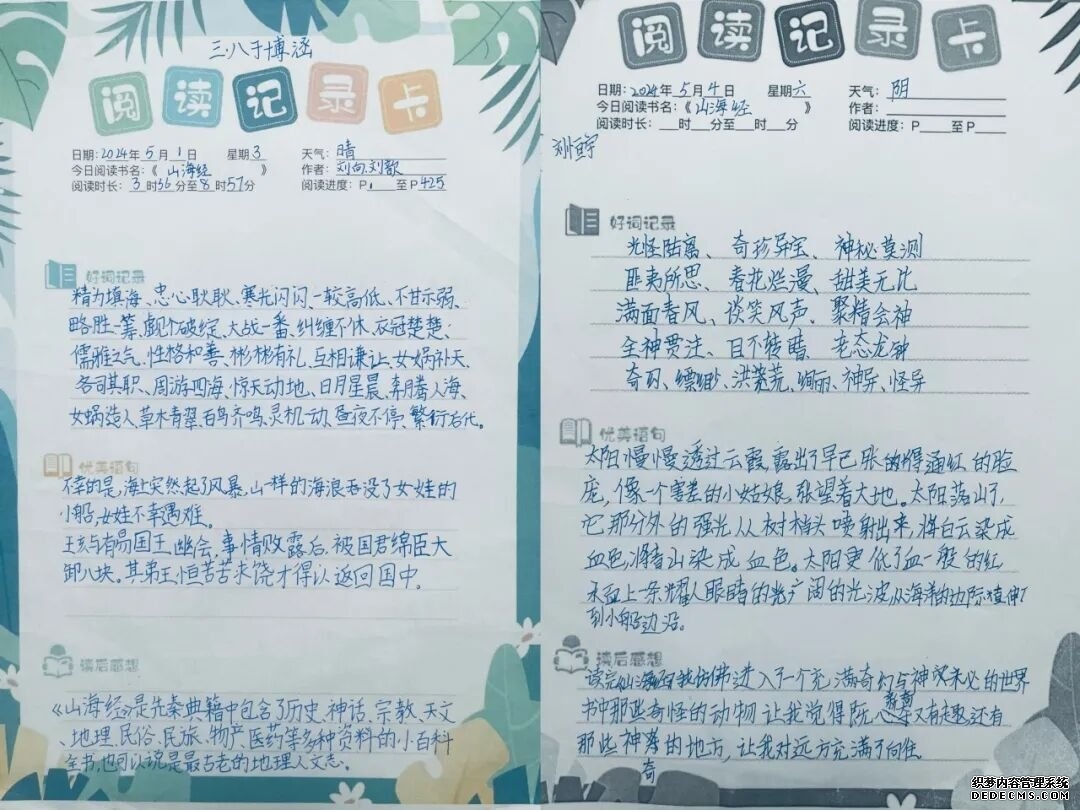 三、八于博涵
阅读记录卡
日期:2024年5月1日 星期3 天气:晴
今日阅读书名:《山海经》 作者:刘向.刘歆
阅读时长:3时56分至8时57分 阅读进度:P1 至P425
好词记录
精为填海、忠心耿耿、寒光闪闪、一较高低、不甘示弱、
略胜一筹、觑个破绽、大战一番、纠缠不休、衣冠楚楚、
儒雅之气、性格和善、彬彬有礼、互相谦让、女娲补天、
各司其职、周游四海、惊天动地、日月星晨、奔腾入海、
女娲造人、草木青翠、百鸟齐鸣、灵机一动、昼夜不停、繁衍后代。
优美语句
不幸的是,海上突然起了风暴,山一样的海浪吞没了女娃的
小船,女娃不幸遇难。
王亥与有易国王幽会,事情败露后,被国君绵臣大
卸八块。其弟王恒苦苦求饶才得以返回国中。
读后感想
《山海经》是先秦典籍中包含了历史、神话、宗教、天文
、地理、民俗、民族、物产、医药等多种资料的小百科
全书,也可以说是最古老的地理人文志。
阅读记录卡
日期:2024年5月4日 星期六 天气:阴
今日阅读书名:《山海经》 作者:
阅读时长:时分至时分 阅读进度:P 至P
刘恒宇
好词记录
光怪陆离、奇珍异宝、神秘莫测
匪夷所思、春花烂漫、甜美无比
满面春风、谈笑风声、聚精会神
全神贯注、目不转睛、老态龙钟
奇幻、缥缈、洪荒、绚丽、神异、怪异
优美语句
太阳慢慢透过云霞,露出了早已胀的得通红的脸
庞,像一个害羞的小姑娘,张望着大地。太阳落山了,
它那分外的强光从树梢头喷射出来,将白云染成
血色,将青山染成血色。太阳更低了血一般的红
水面上一条耀人眼睛的光广阔的光波从海的边际直伸
到小船边沿。
读后感想
读完山海经我仿佛进入了一个充满奇幻与神秘的世界
书中那些奇怪的动物让我觉得既惊又有趣还有
那些神奇的地方,让我对远方充满了向往
织梦内容管理系统
DEDECMS.COM